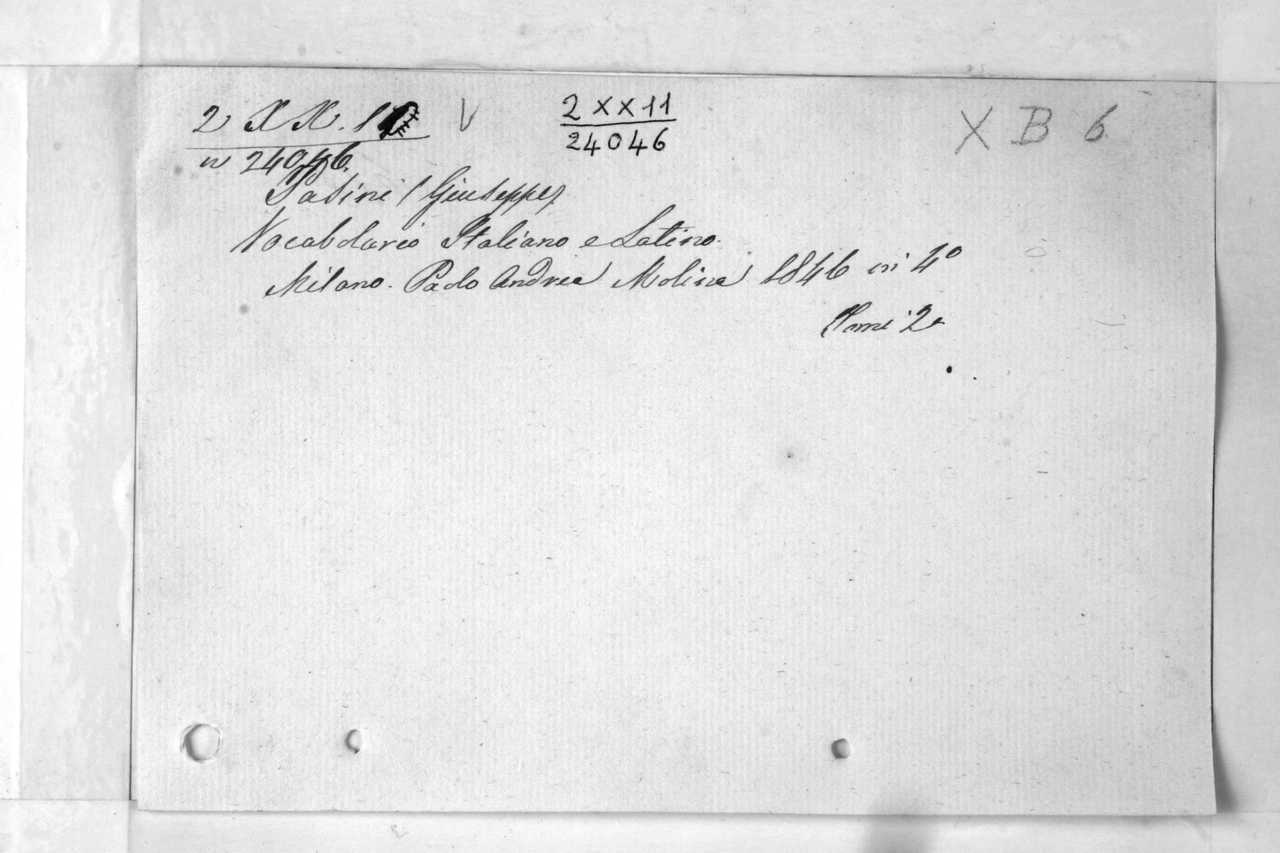 2 XX. 11 V 2 XX 11 X B 6
n 24046. 24046
Pasini (Giuseppe)
Vocabolario Italiano e Latino.
Milano. Paolo Andrea Molina 1846 in 4º
Tomi 2.